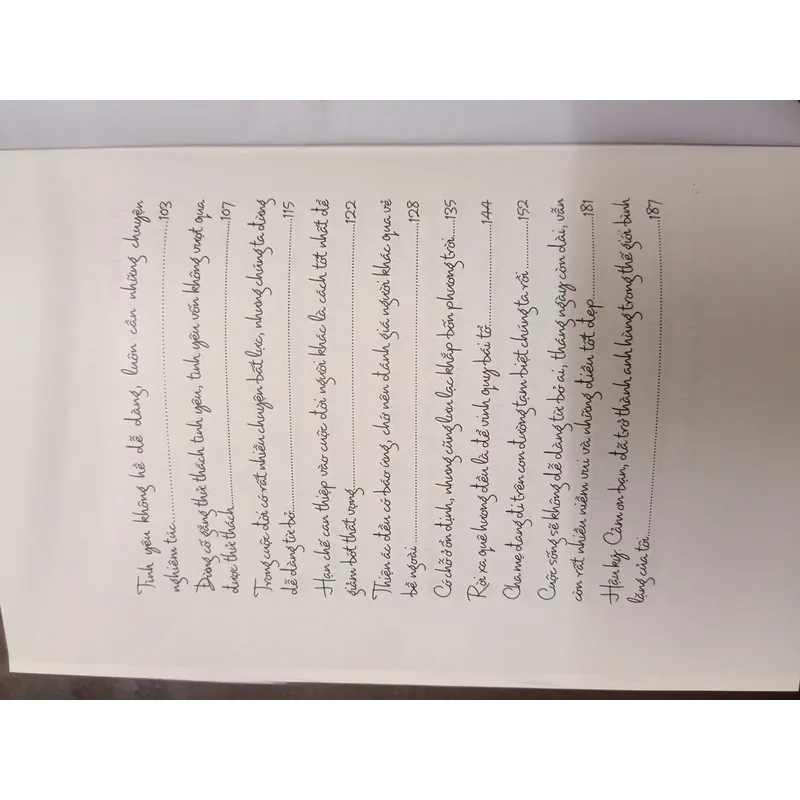 Tình yêu không hề dễ dàng, luôn cần những chuyện
nghiêm túc..........103
Đừng cố gắng thử thách tình yêu, tình yêu vốn không vượt qua
được thử thách..........107
Trong cuộc đời có rất nhiều chuyện bất lực, nhưng chúng ta đừng
dễ dàng từ bỏ..........115
Hạn chế can thiệp vào cuộc đời người khác là cách tốt nhất để
giảm bớt thất vọng..........122
Thiện ác đều có báo ứng, chớ nên đánh giá người khác qua vẻ
bề ngoài..........128
Có chỗ ở ổn định, nhưng cũng lưu lạc khắp bốn phương trời.....135
Rời xa quê hương đều là để vinh quy bái tổ..........144
Cha mẹ đang đi trên con đường tạm biệt chúng ta rồi..........152
Cuộc sống sẽ không dễ dàng từ bỏ ai, tháng ngày còn dài, vẫn
còn rất nhiều niềm vui và những điều tốt đẹp..........181
Hậu ký: Cảm ơn bạn, đã trở thành anh hùng trong thế giới bình
lặng của tôi..........187